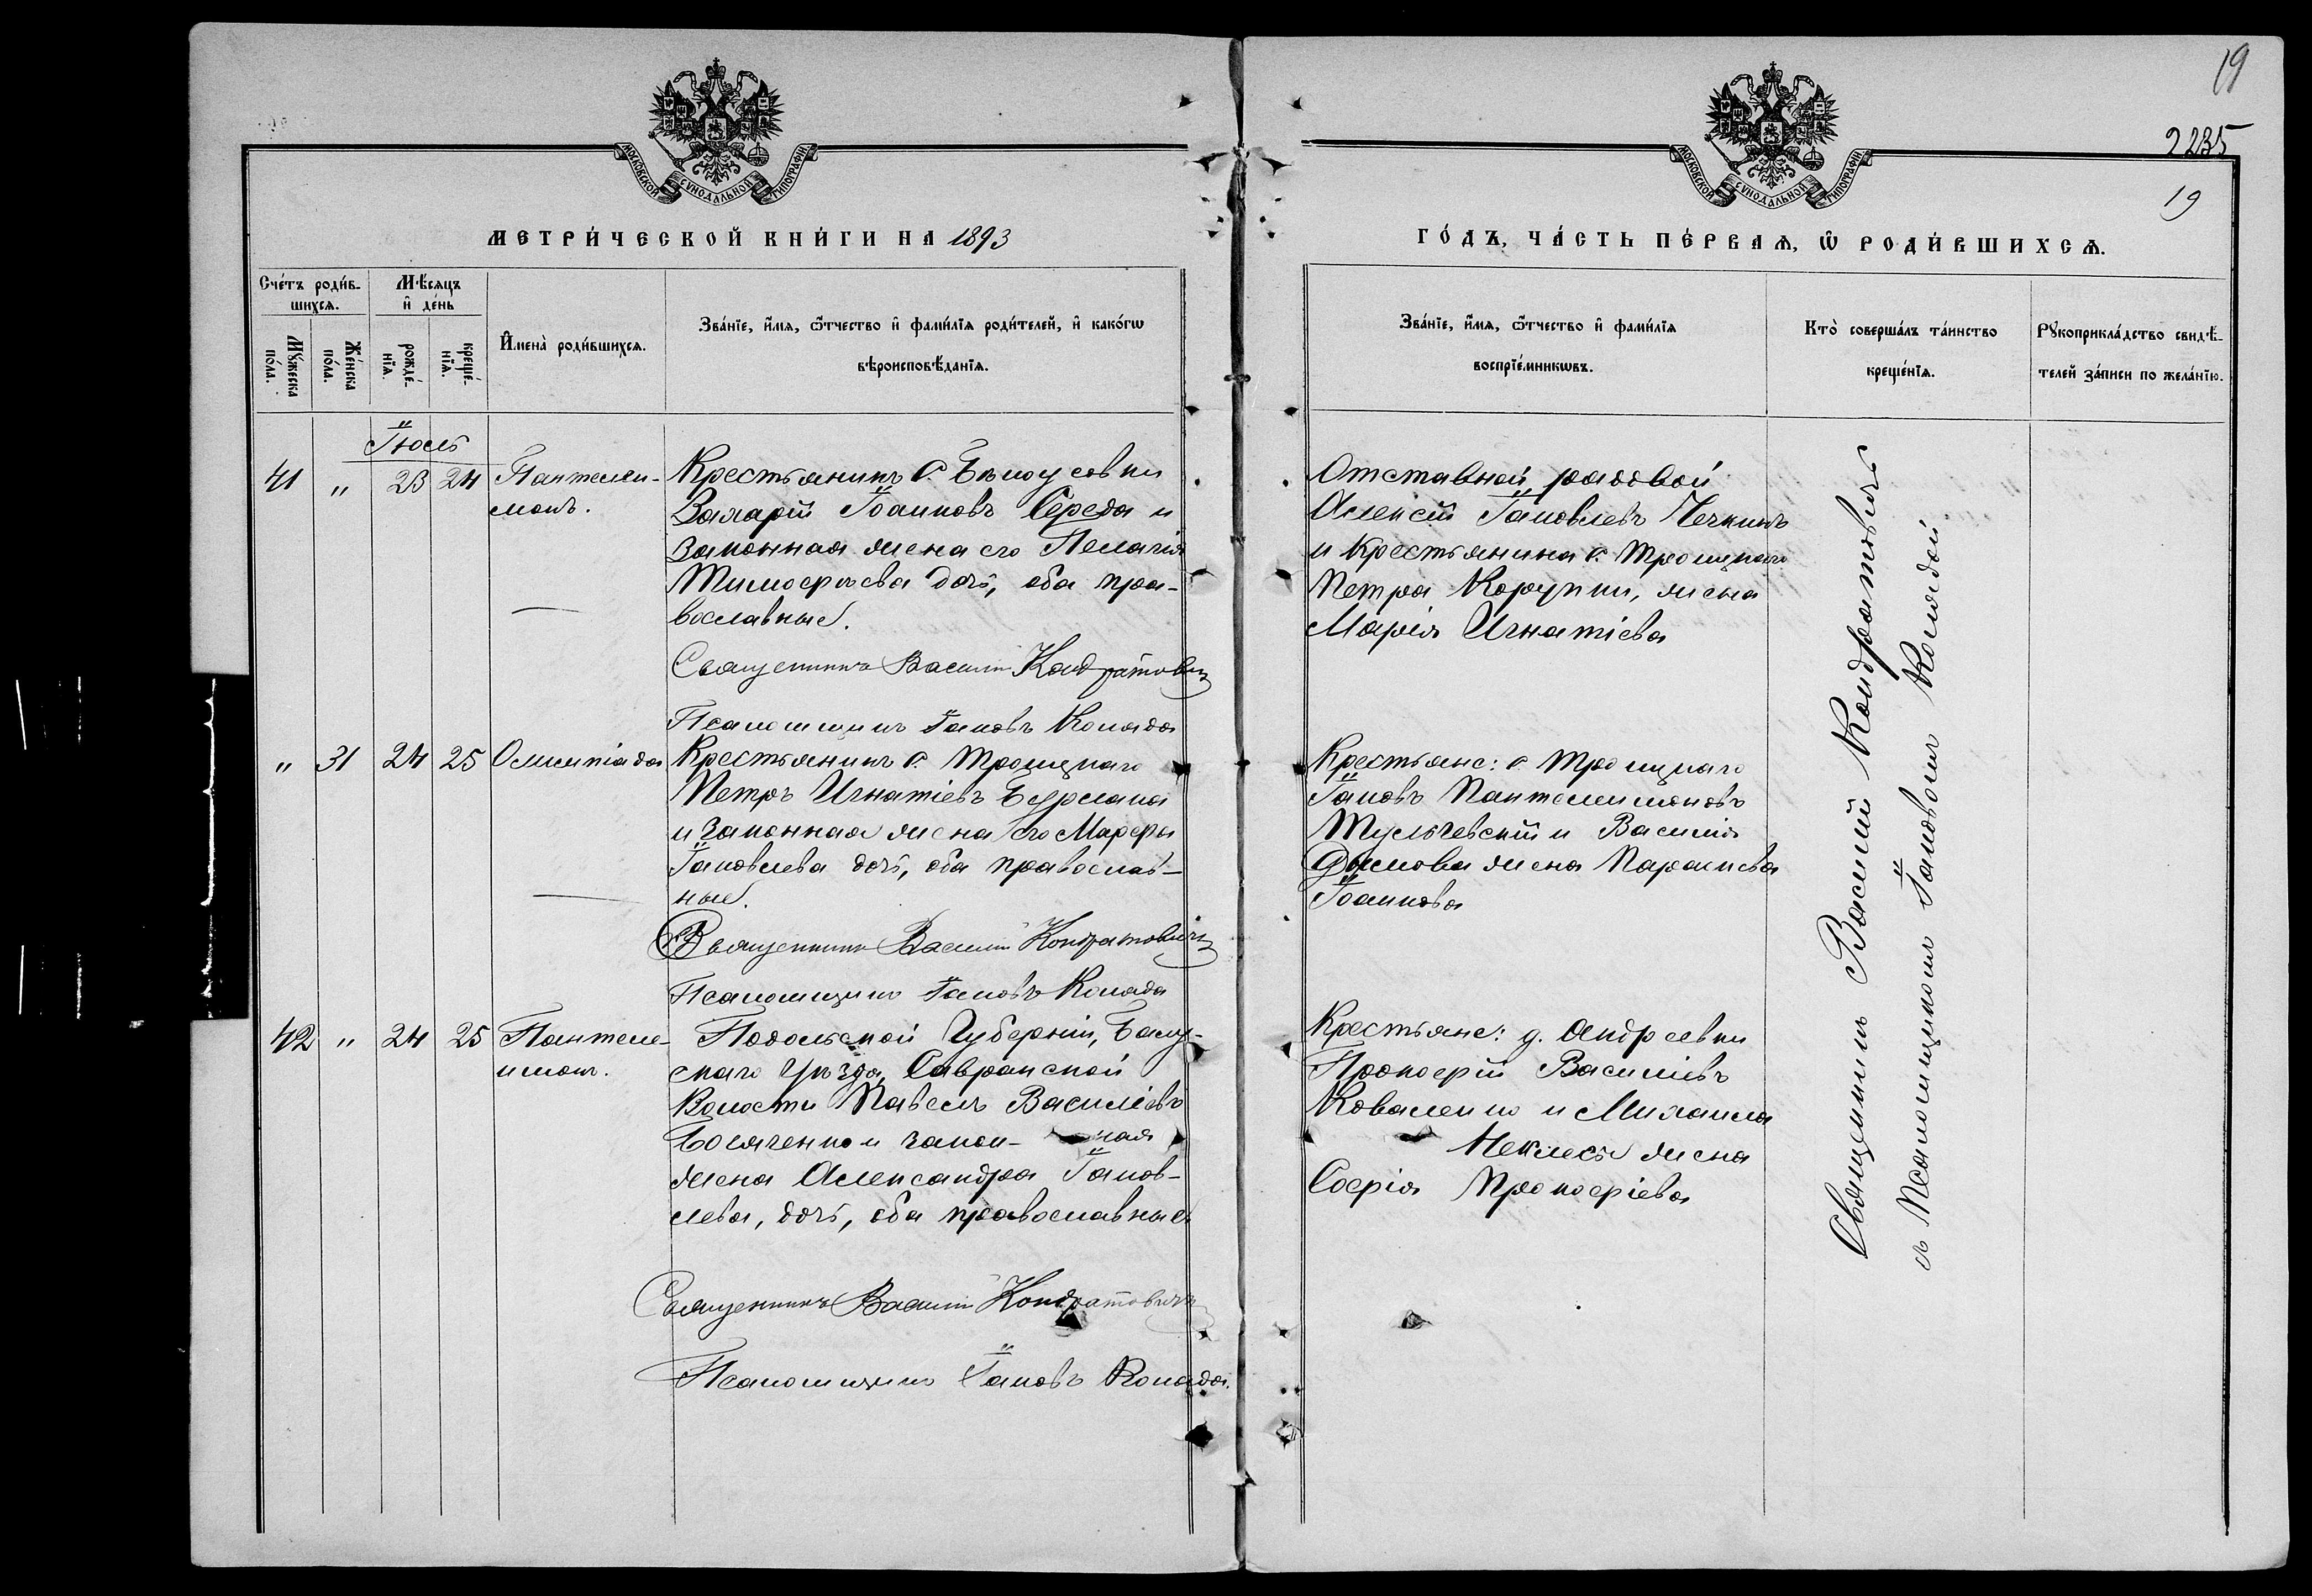 19
2235
19
МОСКОВСКОЙ СѴНОДАЛЬНОЙ ТИПОГРАФІИ
МОСКОВСКОЙ СѴНОДАЛЬНОЙ ТИПОГРАФІИ
МЕТРИ́ЧЕСКОЙ КНИ́ГИ НА 1893
ГО́ДЪ, ЧА́СТЬ ПЕ́РВАѦ, Ѡ҆ РОДИ́ВШИХСѦ.
Сче́тъ роди́в-
шихсѧ.
Мѣ́сѧцъ
и҆ де́нь
Мꙋ́жеска
по́ла.
Же́нска
по́ла.
рожде́-
нїѧ.
креще́-
нїѧ.
И҆мена̀ роди́вшихсѧ.
Зва́нїе, и҆́мѧ, ѻ҆́тчество и҆ фами́лїѧ роди́телей, и҆ како́гѡ
вѣроисповѣ́данїѧ.
Зва́нїе, и҆́мѧ, ѻ҆́тчество и҆ фами́лїѧ
воспрїе́мникѡвъ.
Кто̀ соверша́лъ та́инство
креще́нїѧ.
Рꙋкоприкла́дство свидѣ́-
телей за́писи по жела́нїю.
Іюль
41 " 23 24 Пантелеи-
монъ.
Крестьянинъ с. Бѣлоусовки
Захарій Іоанновъ Середа и
законная жена его Пелагія
Тимофѣева дочь, оба пра-
вославные.
Священникъ Василій Кондратовичъ
Псаломщикъ Іаковъ Коляда
Отставной рядовой
Алексій Іаковлевъ Чечкинъ
и крестьянина с. Троицкаго
Петра жена
Марія Игнатіева
" 31 24 25 Олимпіада
Крестьянинъ с. Троицкаго
Петръ Игнатіевъ Бурлака
и законная жена его Марфа
Іаковлева дочь, оба православ-
ные.
Священникъ Василій Кондратовичъ
Псаломщикъ Іаковъ Коляда
Крестьяне: с. Троицкаго
Іаковъ Пантелеимоновъ
Тульчевскій и Василія
жена Параскева
Іоаннова
42 " 24 25 Пантеле-
имонъ.
Подольской Губерніи, Балт-
скаго Уѣзда, Савранской
Волости Павелъ Василіевъ
и закон- ная
жена Александра Іаков-
лева, дочь, оба православные
Священникъ Василій Кондратовичъ
Псаломщикъ Іаковъ Коляда.
Крестьяне: д. Андреевки
Прокофій Василіевъ
Коваленко и Михаила
жена
Софія Прокофіева
Священникъ Василій Кондратовичъ
съ Псаломщикомъ Іаковомъ Колядой